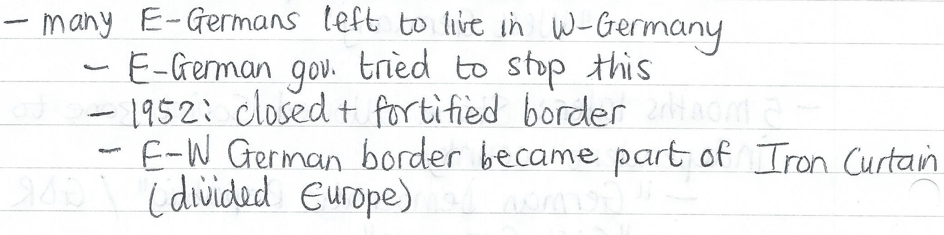 - many E-Germans left to live in W-Germany
- E-German gov. tried to stop this
- 1952: closed + fortified border
- E-W German border became part of Iron Curtain
(divided Europe)